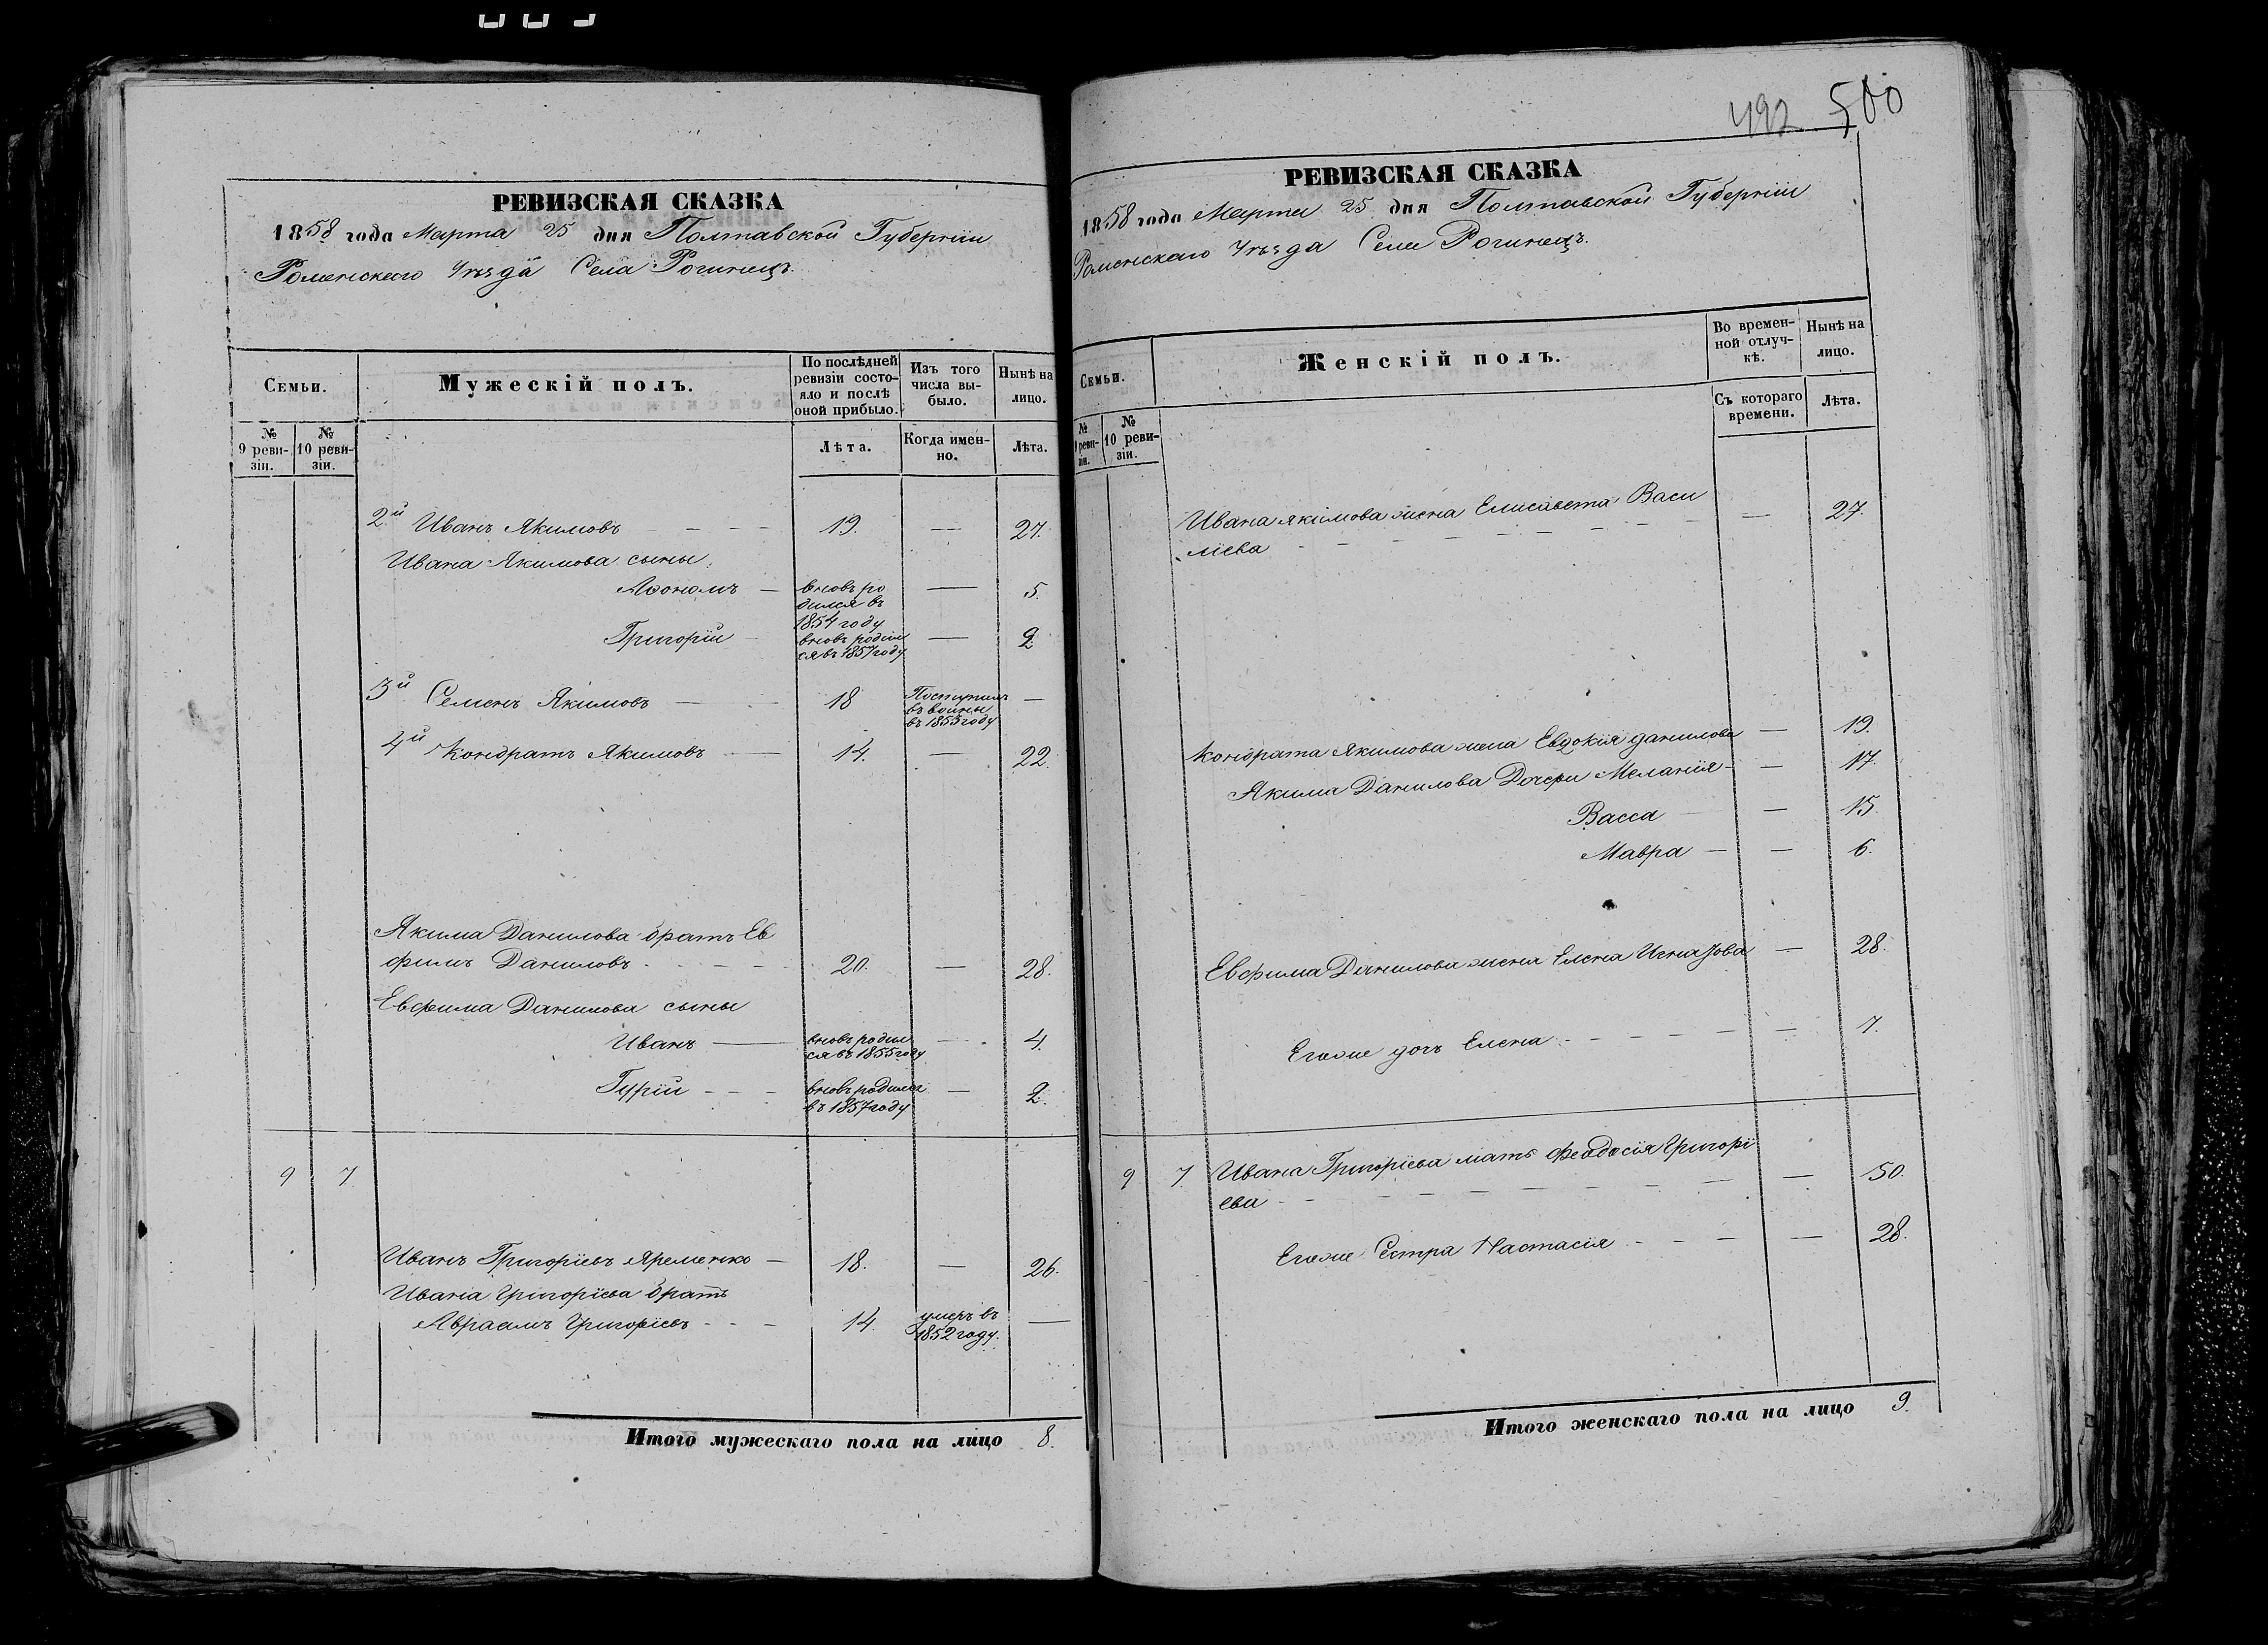 РЕВИЗСКАЯ СКАЗКА
1858 года Марта 25 дня Полтавской Губерніи
Роменскаго Уѣзда Села Рогинецъ.
Семьи.
Мужескій полъ.
По послѣдней ревизіи состояло и послѣ оной прибыло.
Изъ того числа выбыло.
Нынѣ на лицо.
№ 9 ревизіи.
№ 10 ревизіи.
Лѣта.
Когда именно.
Лѣта.
2й Иванъ Якимовъ — 19. — 27.
Ивана Якимова сыны
Афонасъ — вновь родился въ 1854 году — 5.
Григорій — вновь родился въ 1857 году — 2
3й Семенъ Якимовъ — 18 Поступилъ въ воины въ 1855 году —
4й Кондратъ Якимовъ — 14. — 22.
Якима Данилова братъ Ев
фимъ Даниловъ — 20. — 28.
Евфима Данилова сыны
Иванъ — вновь родился въ 1855 году — 4.
Гурій — вновь родился въ 1857 году — 2.
9 7
Иванъ Григоріевъ Яременко — 18. — 26.
Ивана Григоріева братъ
Авраамъ Григоріевъ — 14. умеръ въ 1852 году. —
Итого мужескаго пола на лицо 8.
492 500
РЕВИЗСКАЯ СКАЗКА
1858 года Марта 25 дня Полтавской Губерніи
Роменскаго Уѣзда Села Рогинецъ.
Семьи.
Женскій полъ.
Во временной отлучкѣ.
Нынѣ на лицо.
№ 9 ревизіи.
№ 10 ревизіи.
Съ котораго времени.
Лѣта.
Ивана Якимова жена Елисавета Васи
лiева — 27.
Кондрата Якимова жена Евдокія Данилова — 19.
Якима Данилова Дочери Меланія — 17.
Васса — 15.
Мавра — 6.
Евфима Данилова жена Елена — 28.
Егоже дочь Елена — 7.
9 7 Ивана Григоріева мать Феодосія Григорі
ева — 50.
Егоже Сестра Настасія — 28.
Итого женскаго пола на лицо 9.